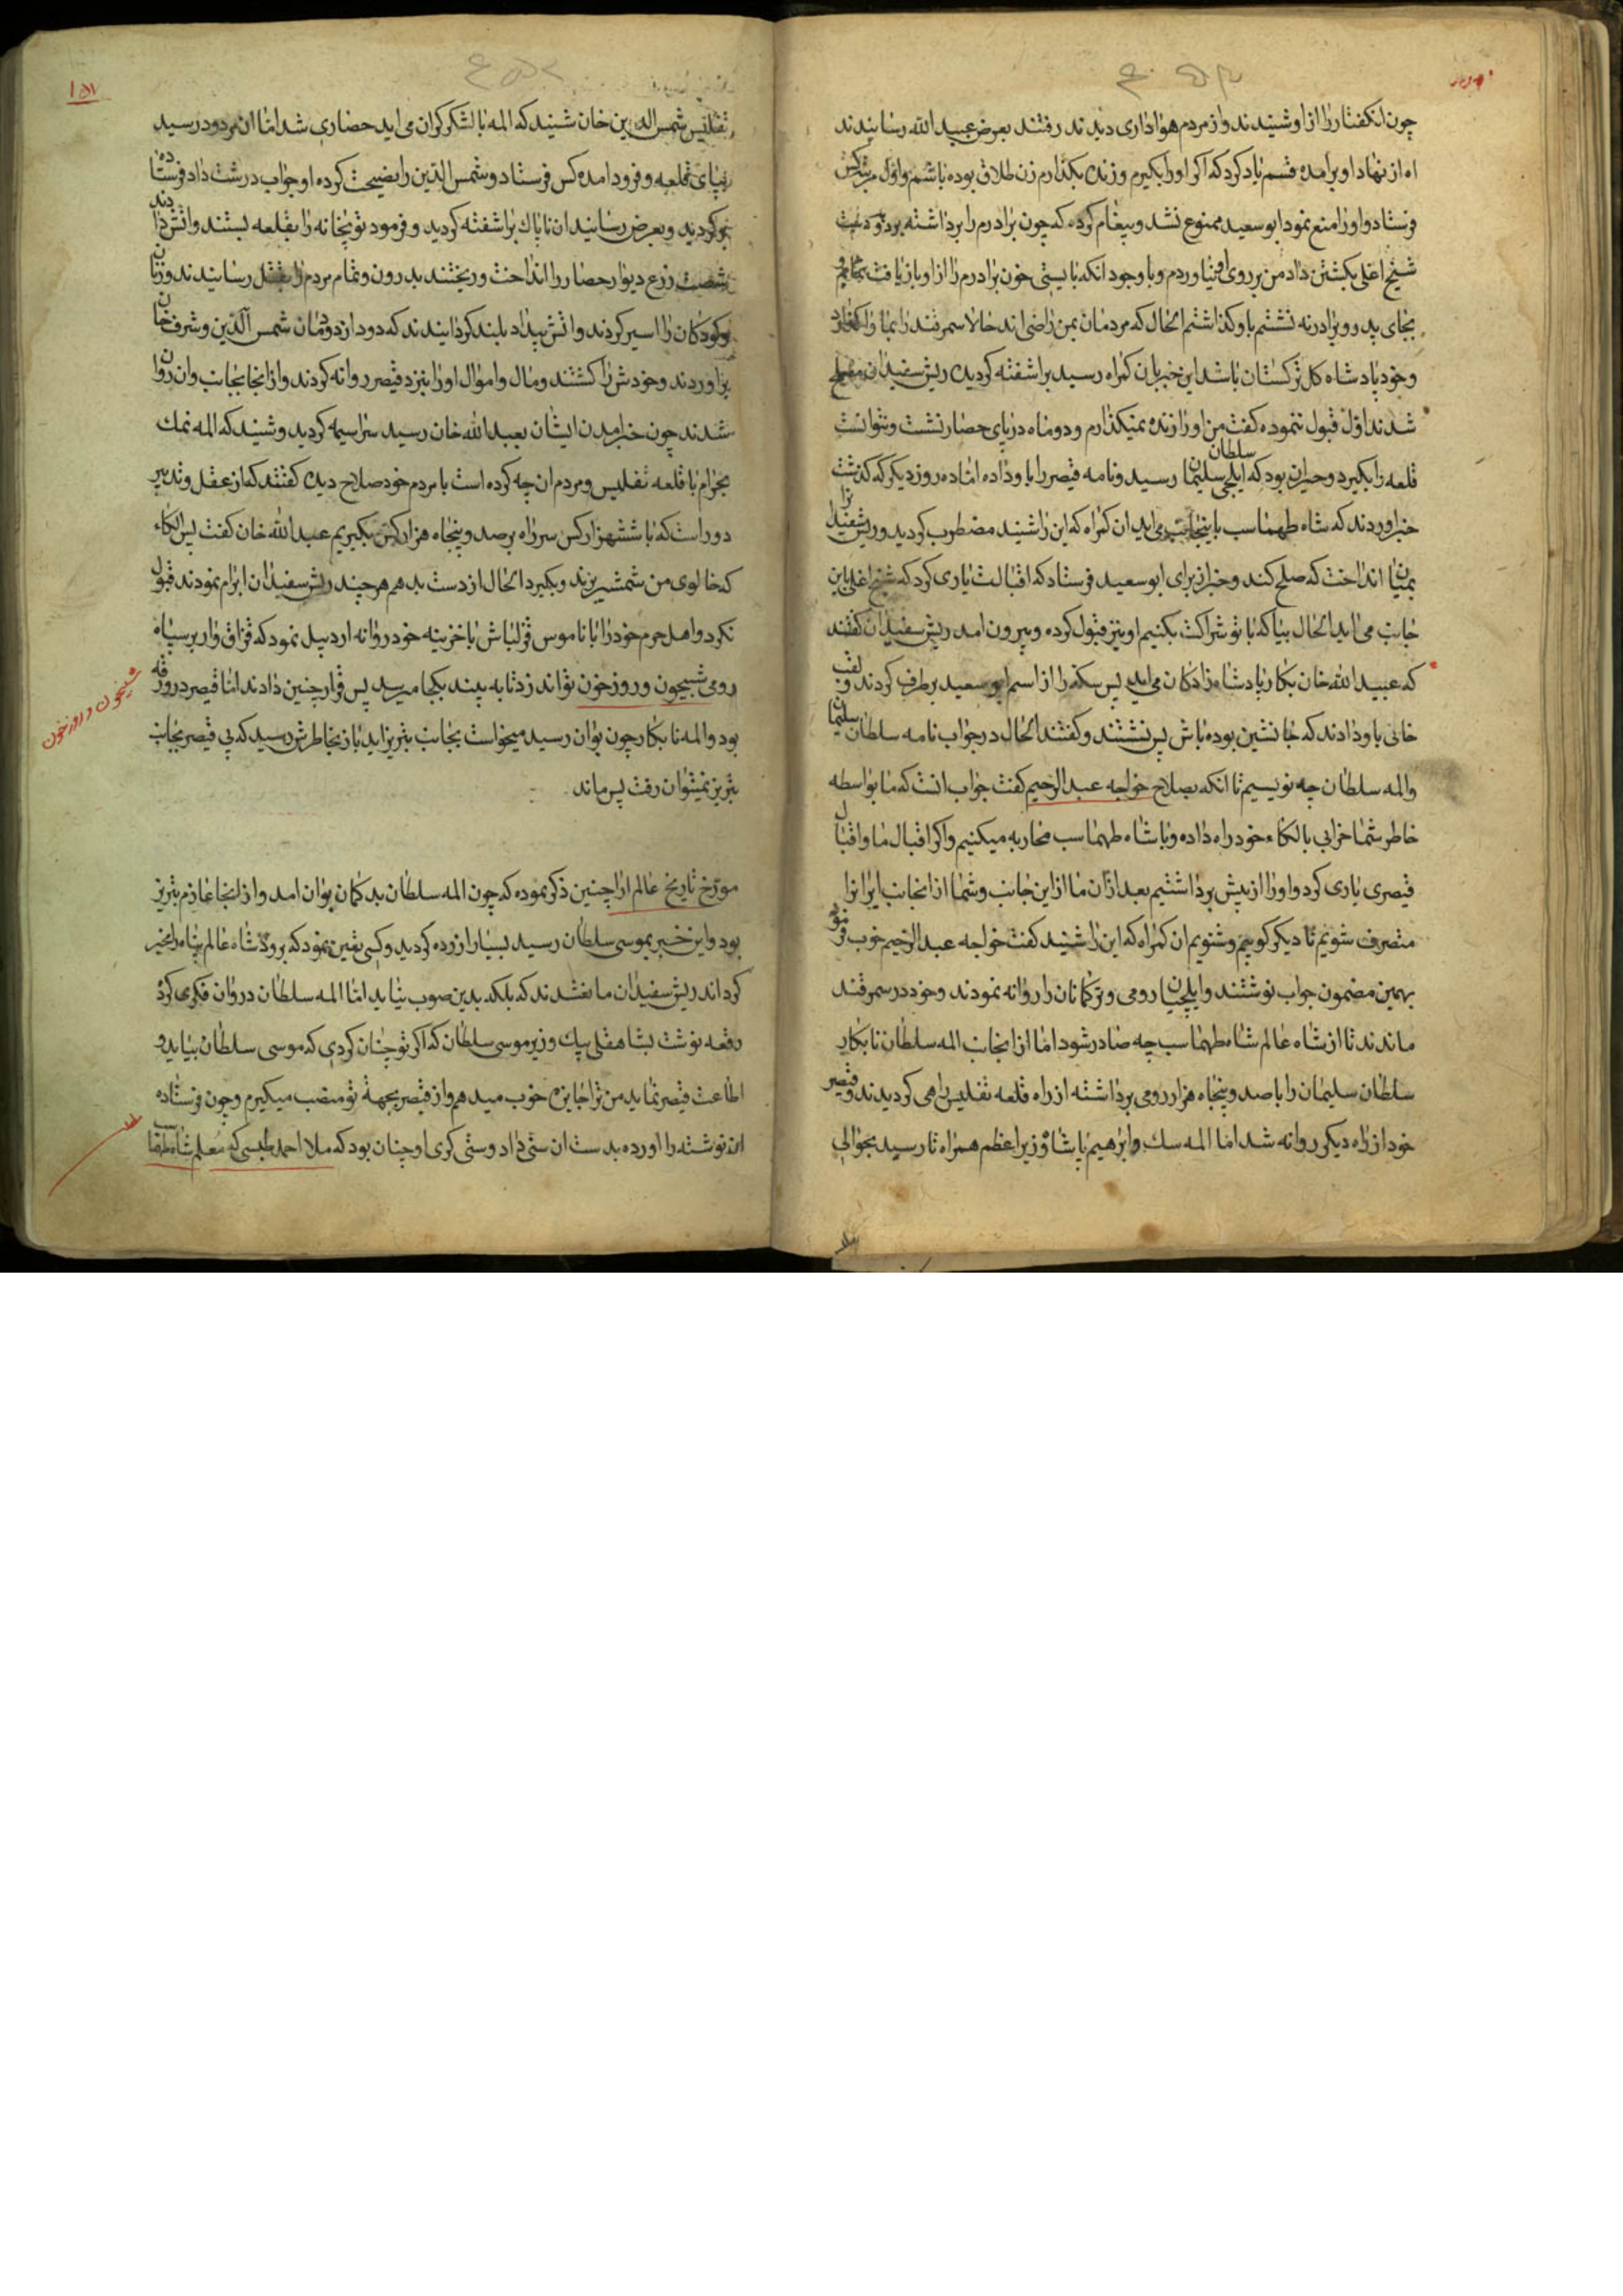 چون انکفتار را از او شنیدند و از مردم هواداری دیدند رفتند بعرض عبید الله رسانیدند
اه از نهاد او برامده قسم یاد کرد که اکر او را بکیرم و زنده بکذارم زن طلاق بوده باشم و اول کس
فرستاد و او را منع نمود ابو سعید ممنوع نشد و پیغام کرد که چون برادرم را برداشته بود
شیخ اغلی بکشتن داد من بر روی او نیاوردم و با وجود انکه بایستی خون برادرم را از او بازیافت
بجای پدر و برادر نه نشستم باو کذاشتم الحال که مردمان بمن راضی اند حالا سمرقند را بما واکذارد
و خود پادشاه کل ترکستان باشد این خبر بان کمراه رسید براشفته کردید ریش سفیدان مصلح
شدند اول قبول ننموده کفت من او را زنده نمیکذارم و دو ماه در پای حصار نشست و نتوانست
قلعه را بکیرد و حیران بود که ایلچی سلطان سلیمان رسید و نامه قیصر را باو داده اماده روز دیکر که کذشت
خبر اوردند که شاه طهماسب باینجانب می اید ان کمراه که این را شنید مضطرب کردید و ریش سفیدانرا
بمیان انداخت که صلح کند و خبر از برای ابو سعید فرستاد که اقبالت یاری کرد که شیخ اغلی باین
جانب می اید الحال بیا که با تو شراکت بکنیم او نیز قبول کرده و بیرون امد ریش سفیدان کفتند
که عبید الله خان بکار پادشاه زادکان می اید پس سکه را از اسم ابو سعید برطرف کردند و لقب
خانی باو دادند که جانشین بوده باش پس نشستند و کفتند الحال در جواب نامه سلطان سلیمان
والمه سلطان چه نویسیم تا انکه بصلاح خواجه عبد الرحیم کفت جواب انست که ما بواسطه
خاطر شما خرابی بالکاء خود راه داده و با شاه طهماسب محاربه میکنیم و اکر اقبال ما و اقبال
قیصری یاری کرد و او را از پیش برداشتیم بعد از ان ما از این جانب و شما از انجانب ایران را
متصرف شویم تا دیکر کوییم و شنویم ان کمراه که این را شنید کفت خواجه عبد الرحیم خوب فرمود
بهمین مضمون جواب نوشتند و ایلچیان رومی و ترکمانان را روانه نمودند و خود در سمرقند
ماندند تا از شاه عالم شاه طهماسب چه صادر شود اما از انجانب المه سلطان نابکار
سلطان سلیمان را با صد و پنجاه هزار رومی برداشته از راه قلعه تفلیس راهی کردیدند و قیصر
خود از راه دیکر روانه شد اما المه سک و ابرهیم پاشا وزیر اعظم همراه تا رسید بحوالی
١٥١
تفلیس شمس الدین خان شنید که المه با لشکر کران می اید حصاری شد اما ان مردود رسید
بپای قلعه و فرود امده کس فرستاد و شمس الدین را نصیحت کرده او جواب درشت داد فرستاده
برکردید و بعرض رسانید ان ناپاک براشفته کردید و فرمود توپخانه را بقلعه بستند و اتش دادند
شصت زرع دیوار حصار را انداخت و ریختند بدرون و تمام مردم را بقتل رسانیدند و زنان
و کودکان را اسیر کردند و اتش بیداد بلند کردانیدند که دود از دودمان شمس الدین و شرف خان
براوردند و خودش را کشتند و مال و اموال او را بنزد قیصر روانه کردند و از انجا بجانب وان روان
شدند چون خبر امدن ایشان بعبد الله خان رسید سراسیمه کردید و شنید که المه نمک
بحرام با قلعه تفلیس و مردم ان چه کرده است با مردم خود صلاح دید کفتند که از عقل و تدبیر
دور است که با ششهزار کس سر راه بر صد و پنجاه هزار کس بکیریم عبد الله خان کفت پس الکاء
که خالوی من شمشیر بزند و بکیرد الحال از دست بدهم هر چند ریش سفیدان ابرام نمودند قبول
نکرد و اهل حرم خود را با ناموس قزلباش با خزینه خود روانه اردبیل نمود که قزاق وار بر سپاه
رومی شبیخون و روزخون تواند زد تا به بیند بکجا میرسد پس قرار چنین دادند اما قیصر در ورقه
بود والمه نابکار چون بوان رسید میخواست بجانب تبریز اید باز بخاطرش رسید که بی قیصر بجانب
تبریز نمیتوان رفت پس ماند
شبیخون و روزخون
مورخ تاریخ عالم ارا چنین ذکر نموده که چون المه سلطان بد کمان بوان امد و از انجا عازم تبریز
بود و این خبر بموسی سلطان رسید بسیار ازرده کردید و کسی تعین نمود که برود شاه عالم پناه را خبر
کرداند ریش سفیدان مانع شدند که بلکه بدین صوب نیاید اما المه سلطان در وان فکری کرد
رقعه نوشت بشاهقلی بیک وزیر موسی سلطان که اکر تو چنان کردی که موسی سلطان بیاید و
اطاعت قیصر نماید من ترا جایزه خوب میدهم و از قیصر بجهة تو منصب میکیرم و چون فرستاده
ان نوشته را اورده بدست ان سنی داد و سنی کری او چنان بود که ملا احمد طبسی که معلم شاه طهماسب